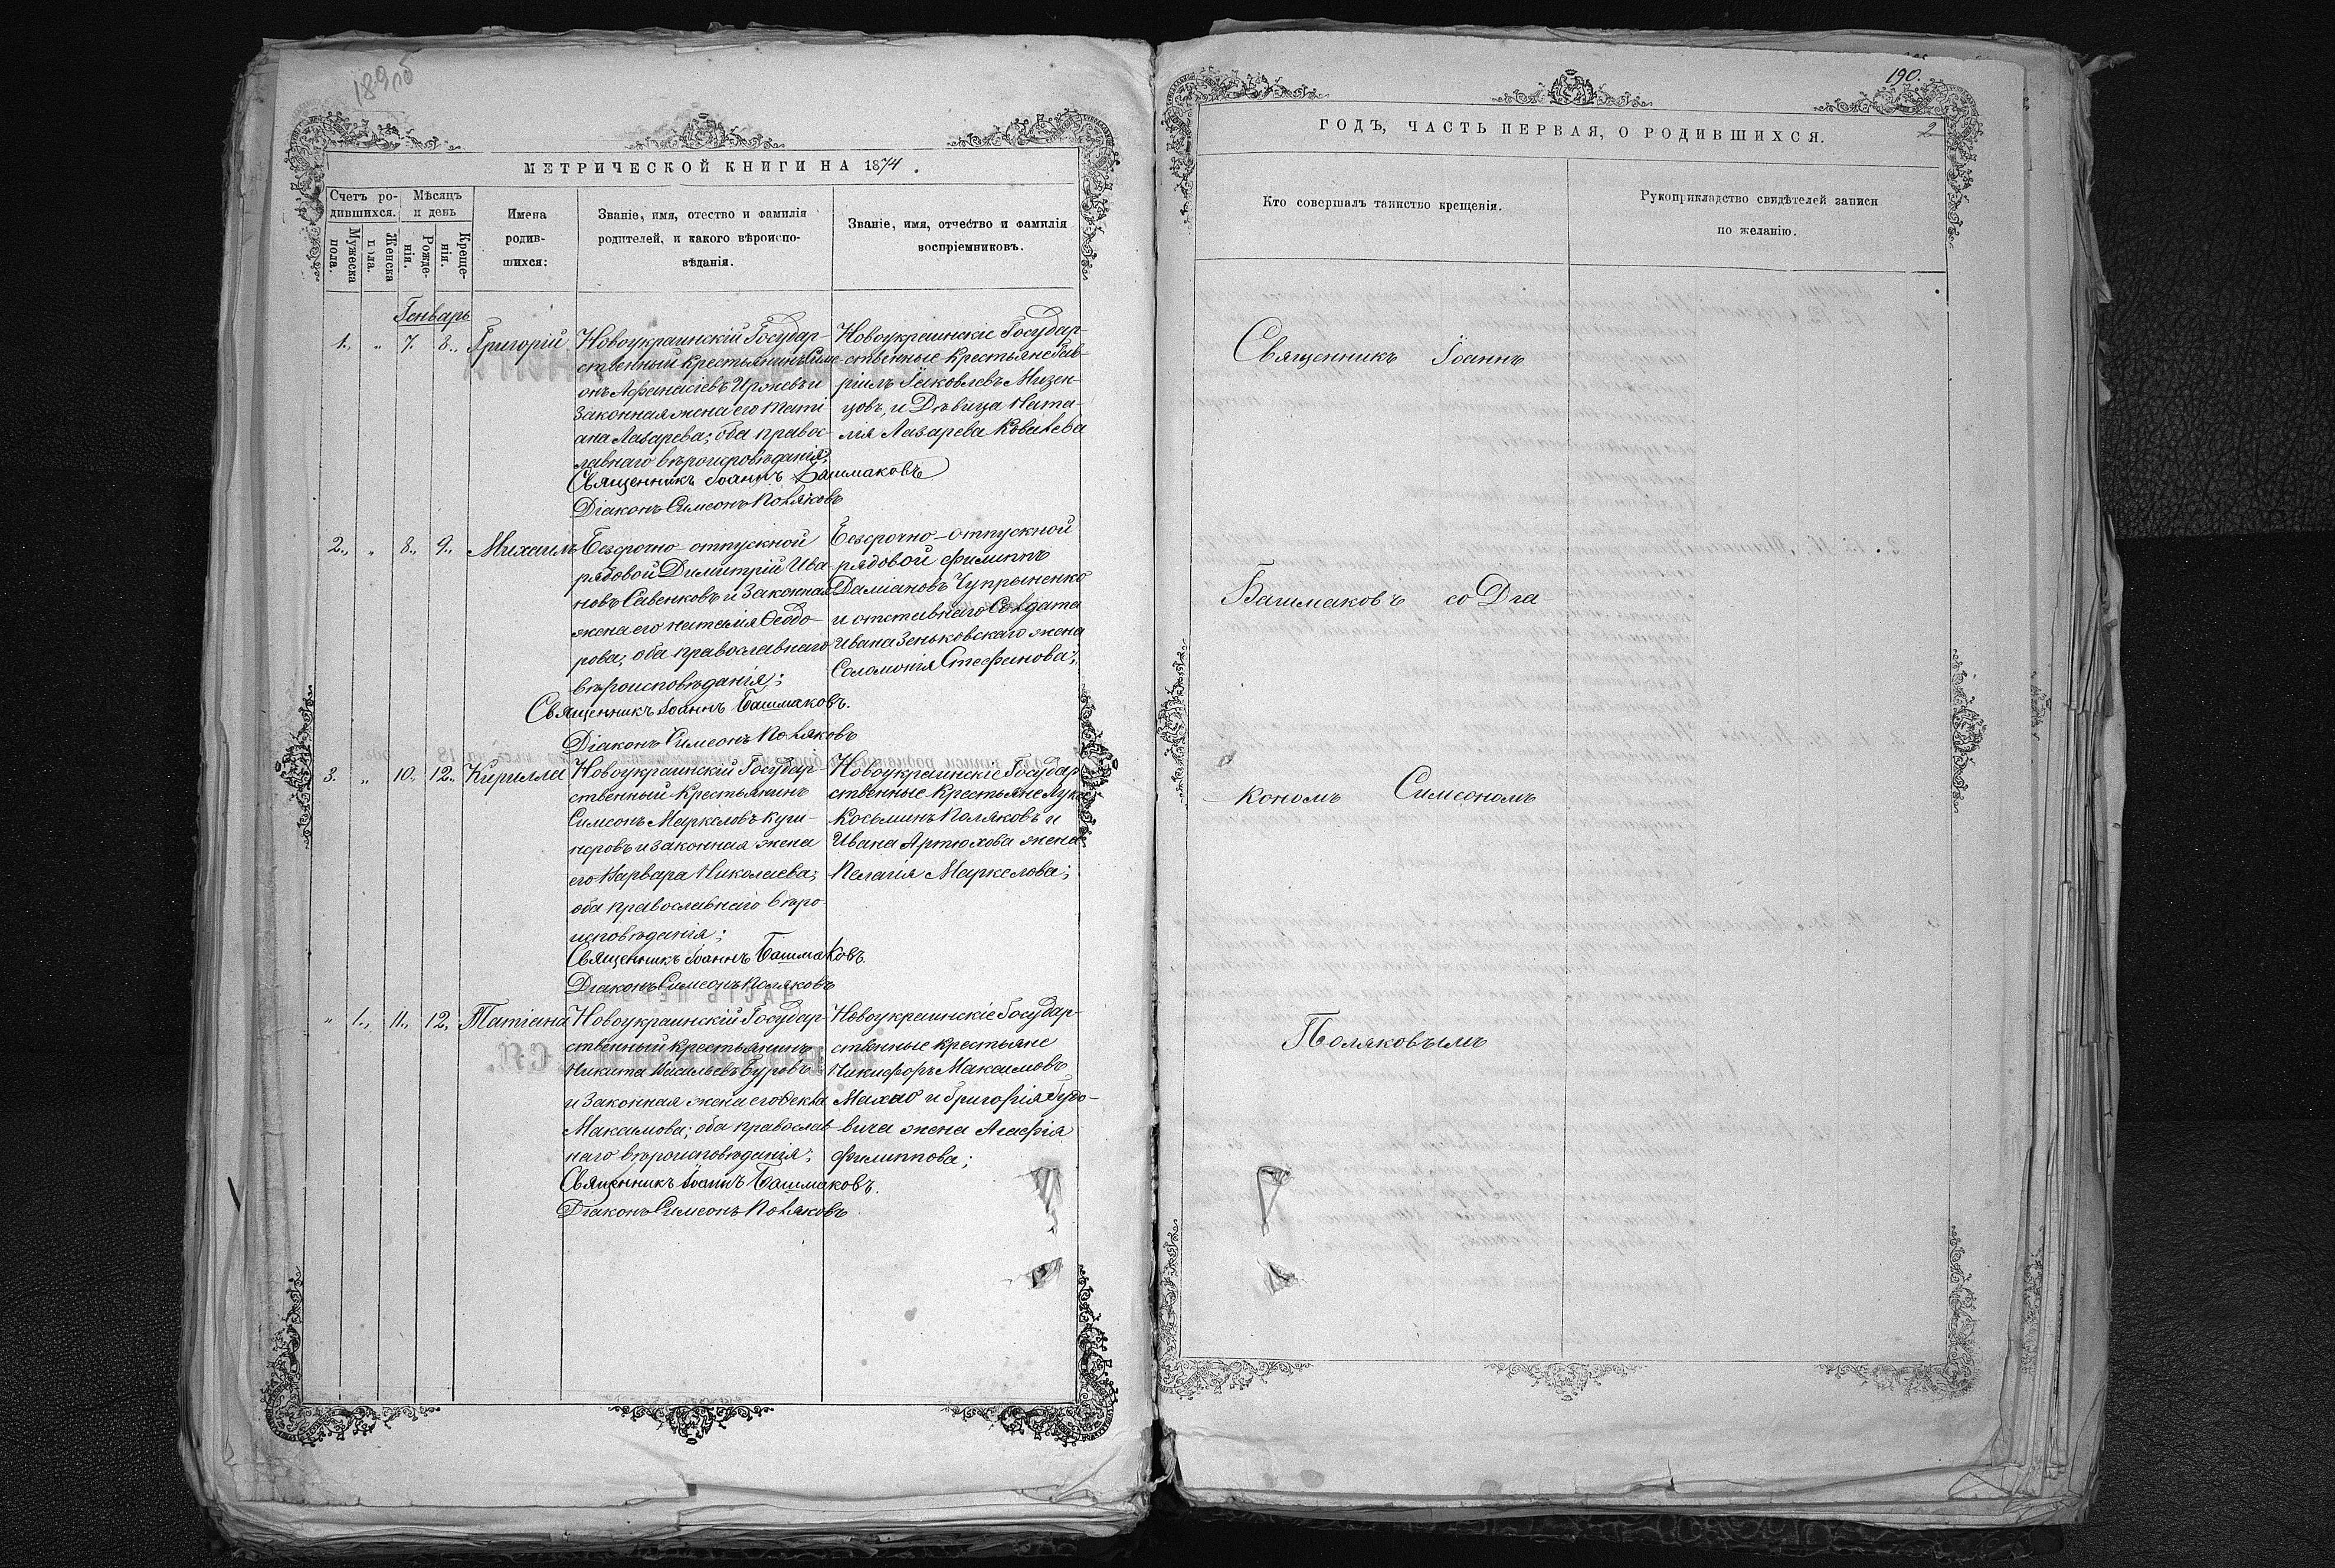 189об
МЕТРИЧЕСКОЙ КНИГИ НА 1874.
Счетъ ро-
дившихся.
Мѣсяцъ
и день
Мужеска
пола.
Женска
пола.
Рожде-
нія.
Креще-
нія.
Имена
родив-
шихся:
Званіе, имя, отество и фамилія
родителей, и какого вѣроиспо-
вѣданія.
Званіе, имя, отчество и фамилія
воспріемниковъ.
Генварь
1., „ 7. 8., Григорій
Новоукраинскій Государ-
ственный крестьянинъ Симе-
онъ Афанасіевъ и
законная жена его Таті
ана Лазарева; оба правос-
лавнаго вѣроисповѣданія;
Священникъ Іоаннъ Башмаковъ
Діаконъ Симеонъ Поляковъ
Новоукраинскіе Государ-
ственные крестьяне Гав-
ріилъ Іаковлевъ Мизен-
цовъ, и Дѣвица Ната-
лія Лазарева Ковалева
2., „ 8., 9., Михаилъ
Безсрочно-отпускной
рядовой Димитрій Ива
новъ Савенковъ и законная
жена его Наталія Ѳеодо-
рова; оба православнаго
вѣроисповѣданія;
Священникъ Іоаннъ Башмаковъ.
Діаконъ Симеонъ Поляковъ
Безсрочно-отпускной
рядовой Филиппъ
Даміановъ Чупрыненко
и отставнаго Солдата
Ивана Зеньковскаго жена
Соломонія Стефанова;
3. „ 10., 12., Кирилла
Новоукраинскій Государ-
ственный крестьянинъ
Симеонъ Маркеловъ Куш-
неровъ и законная жена
его Варвара Николаева;
оба православнаго вѣро-
исповѣданія;
Священникъ Іоаннъ Башмаковъ.
Діаконъ Симеонъ Поляковъ
Новоукраинскіе Государ
ственные крестьяне Лука
Косьминъ Поляковъ и
Ивана Артюхова жена
Пелагія Маркелова;
„ 1., 11., 12., Татіана
Новоукраинскій Государ-
ственный крестьянинъ
Никита Васильевъ Буровъ
и законная жена его Ѳекла
Максимова; оба православ
наго вѣроисповѣданія;
Священникъ Іоаннъ Башмаковъ.
Діаконъ Симеонъ Поляковъ
Новоукраинскіе Государ-
ственные крестьяне
Никифоръ Максимовъ
Махно и Григорія Удо-
вича жена Агафія
Филиппова;
190.
2
ГОДЪ, ЧАСТЬ ПЕРВАЯ, О РОДИВШИХСЯ.
Кто совершалъ таинство крещенія.
Рукоприкладство свидѣтелей записи
по желанію.
Священникъ Іоаннъ
Башмаковъ со Діа-
кономъ Симеономъ
Поляковымъ